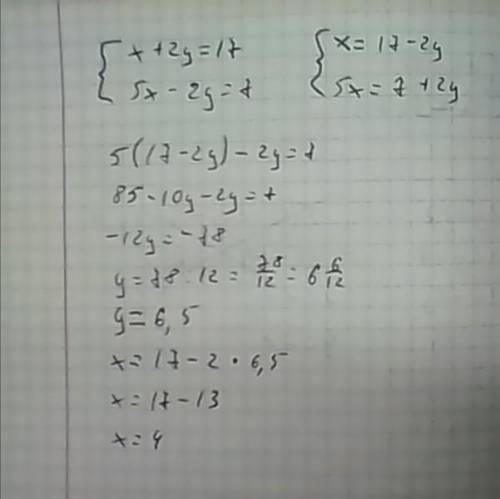 x+2y=17 x=17-2y
5x-2y=7 5x=7+2y
5(17-2y)-2y=7
85-10y-2y=7
-12y=-78
y=78:12=78/12=6 6/12
y=6,5
x=17-2•6,5
x=17-13
x=4